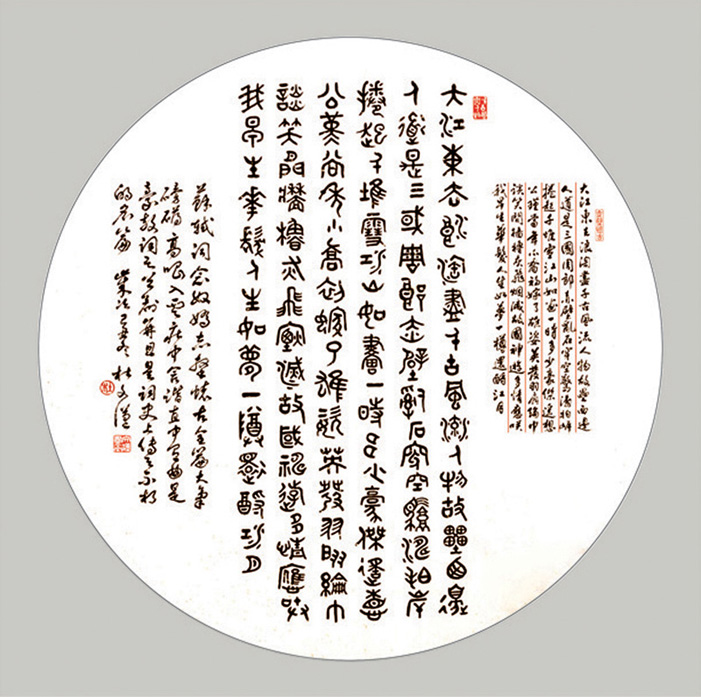 大江東去浪淘盡千古風流人物故壘西邊
人道是三國周郎赤壁亂石穿空驚濤拍岸
捲起千堆雪江山如畫一時多少豪傑遙想
公瑾當年小喬初嫁了雄姿英發羽扇綸巾
談笑間檣櫓灰飛煙滅故國神遊多情應笑
我早生華髮人生如夢一樽還酹江月
大江東去浪淘盡千古風流人物故壘西邊
人道是三國周郎赤壁亂石穿空驚濤拍岸
捲起千堆雪江山如畫一時多少豪傑遙想
公瑾當年小喬初嫁了雄姿英發羽扇綸巾
談笑間檣櫓灰飛煙滅故國神遊多情應笑
我早生華髮人生如夢一樽還酹江月
蘇軾詞念奴嬌赤壁懷古全篇大氣
磅礴高唱入雲莊中含諧直中有曲是
豪放詞之制并且是詞史上傳之不朽
的名篇 杜文